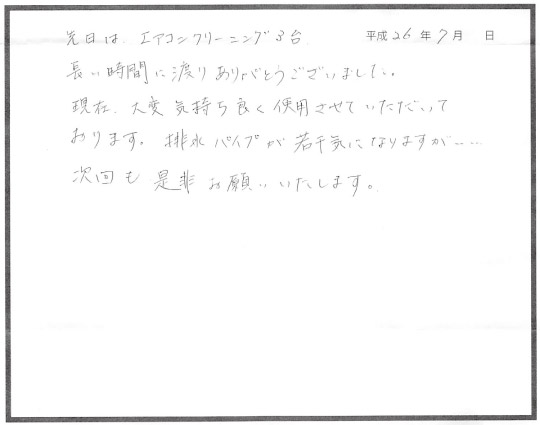 先日は、エアコンクリーニング3台 平成26年7月 日
長い時間に渡りありがとうございました。
現在、大変気持ち良く使用させていただいて
おります。排水パイプが若干気になりますが……
次回も是非お願いいたします。